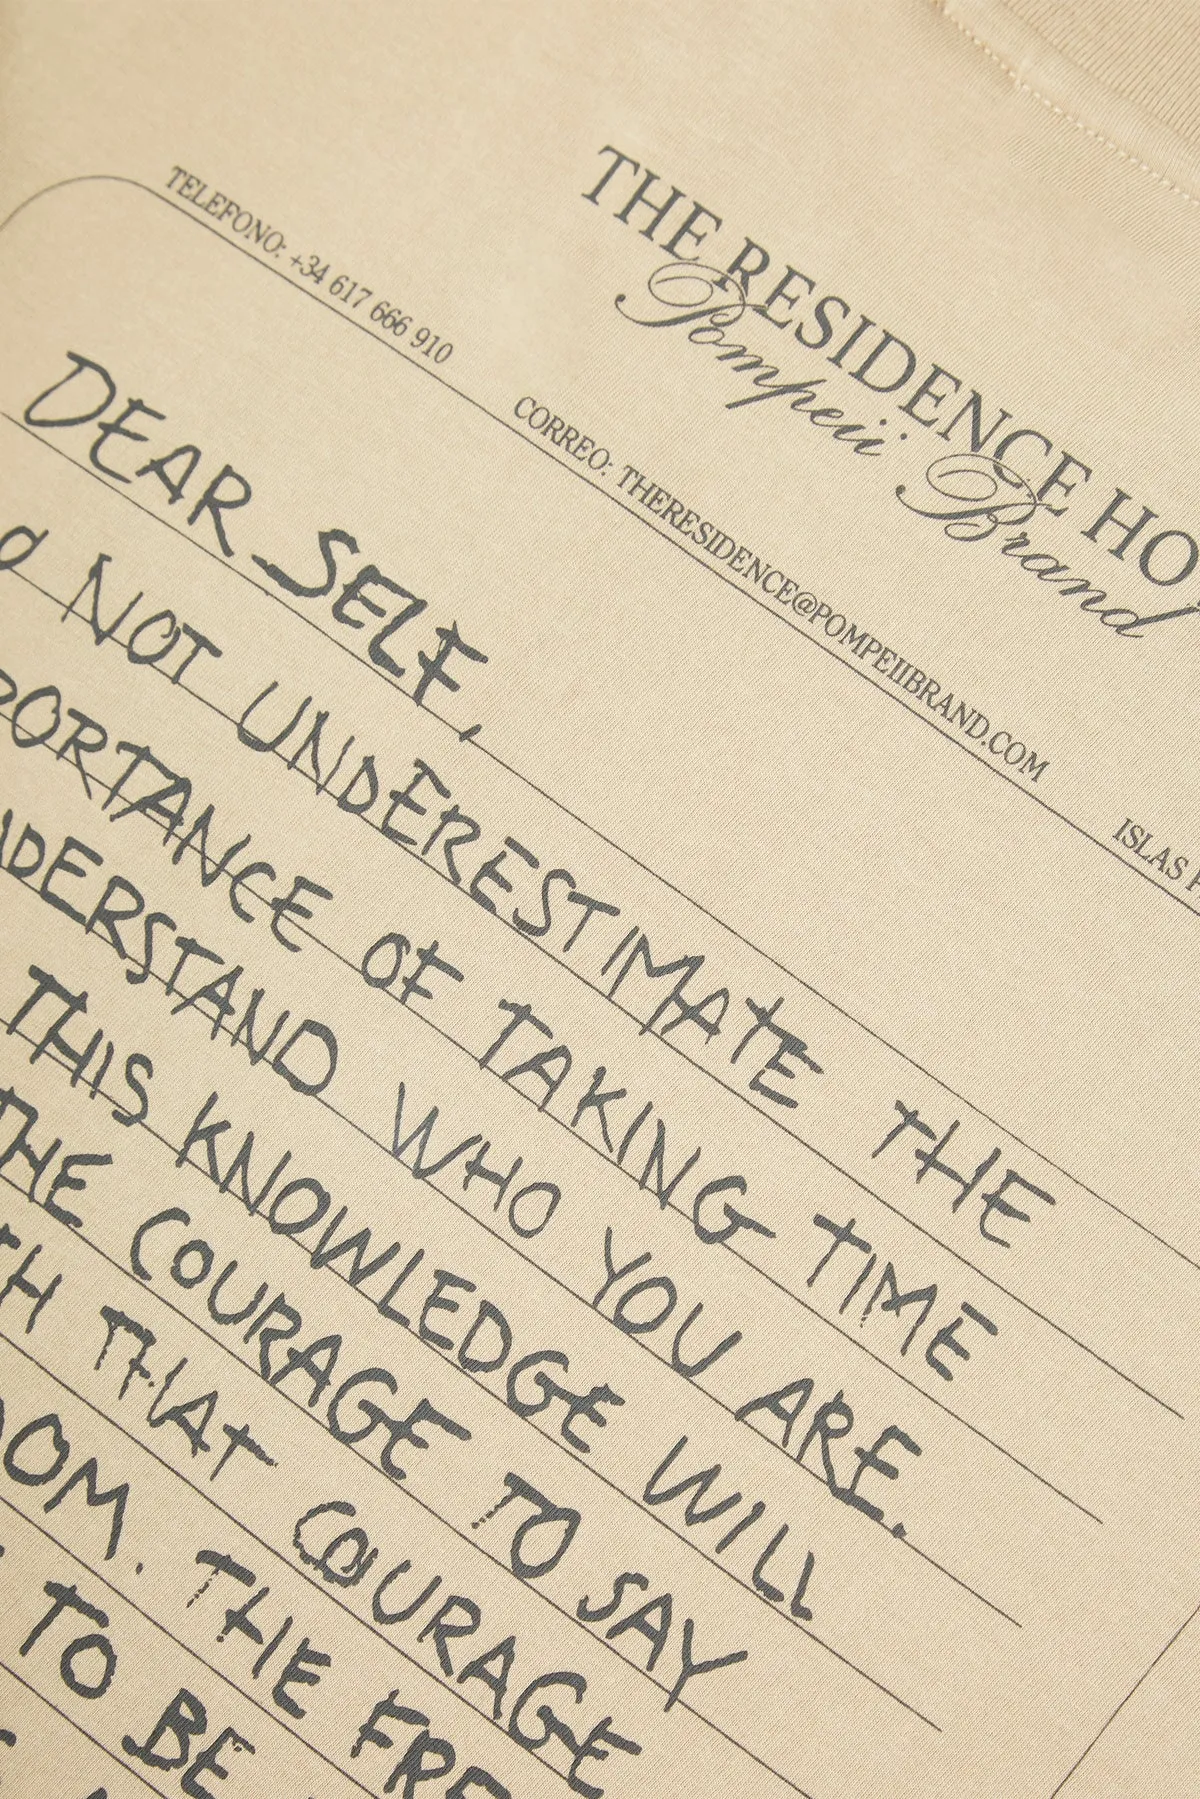 THE RESIDENCE HO
Pompeii Brand
TELEFONO: +34 617 666 910
CORREO: THERESIDENCE@POMPEIIBRAND.COM
ISLAS
DEAR SELF,
NOT UNDERESTIMATE THE
PORTANCE OF TAKING TIME
DERSTAND WHO YOU ARE.
THIS KNOWLEDGE WILL
THE COURAGE TO SAY
TH THAT COURAGE
DOM. THE FRE
TO BE